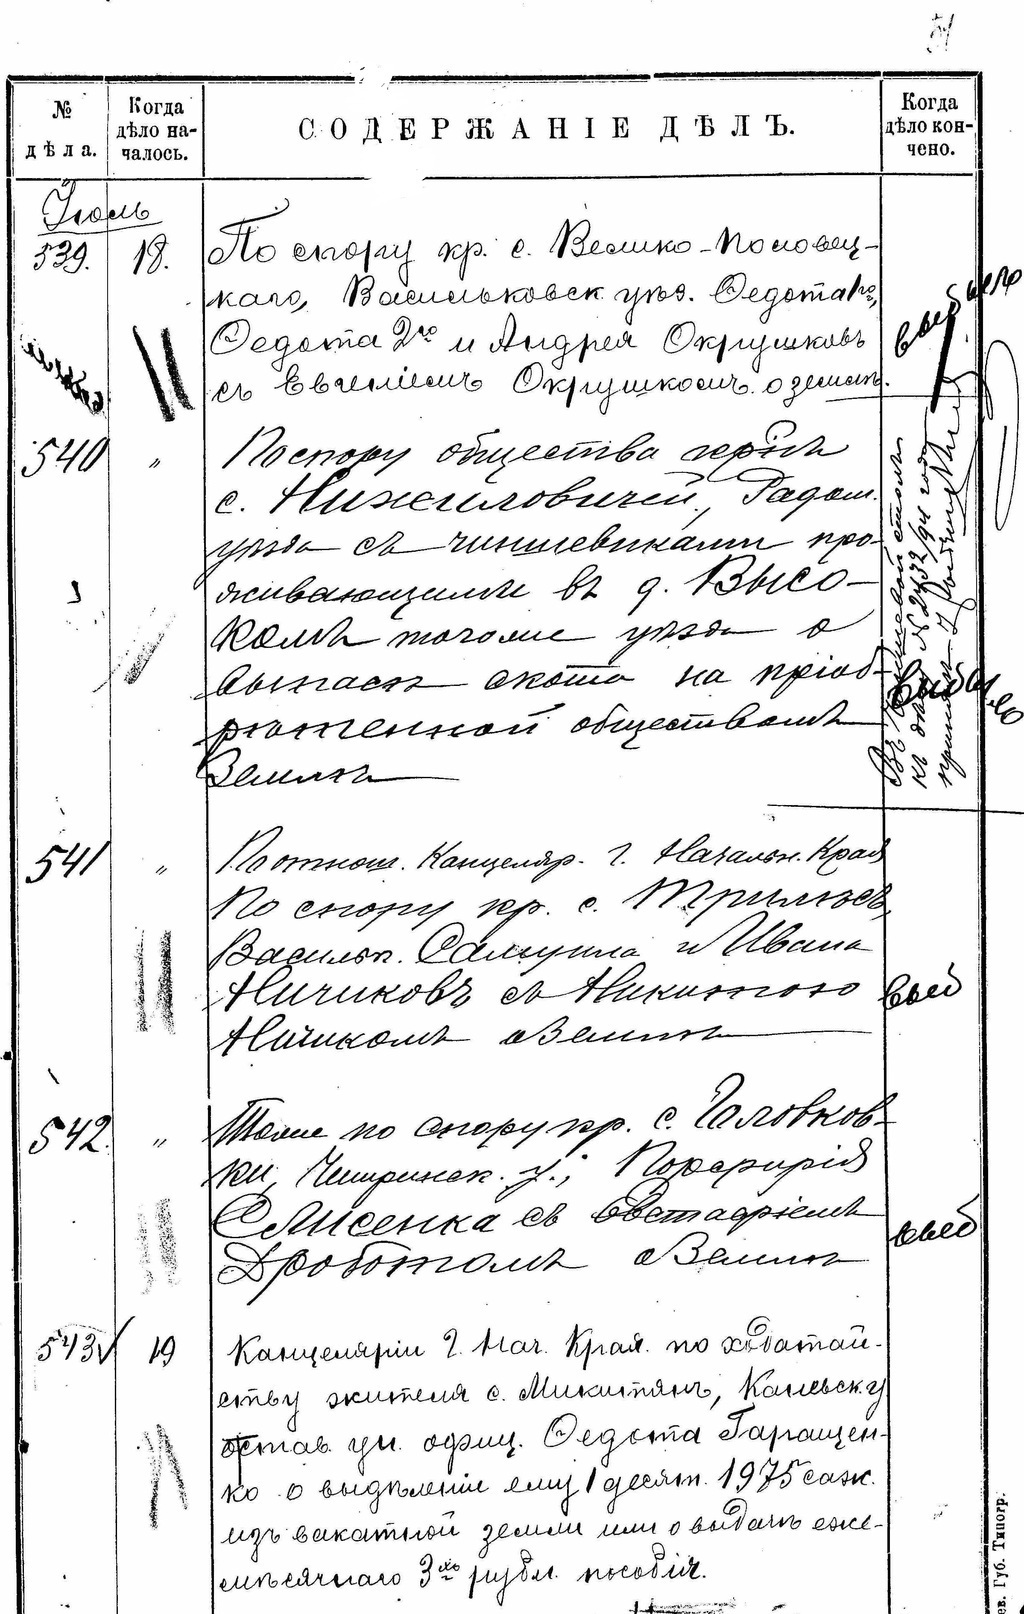 51
№ дѣла.
Когда дѣло на-
чалось.
СОДЕРЖАНІЕ ДѢЛЪ.
Когда
дѣло кон-
чено.
Іюль
539. 18. По спору кр. с. Велико-Половец-
каго, Васильковск. уѣз. Ѳедота 1го,
Ѳедота 2го и Андрея Окрушковъ
съ Евгеніемъ Окрушкомъ о землѣ.
выбыло
540 " По спору общества крѣнъ
с. Нижиловичей, Радом.
уѣзда съ чиншевиками про-
живающими въ д. Высо-
комъ тогоже уѣзда о
выпасѣ скота на пріоб-
рѣтенной обществомъ
Землѣ
Въ Чиншевой столъ
къ дѣлу № 2432/94 года
принялъ
выбыло
541 " По отнош. Канцеляр. Г. Начальн. Края
По спору кр. с. Трилѣсъ,
Васильк. Самуила и Ивана
Ничиковъ съ Никитою
Ничикомъ о Землѣ
выб
542. " Тоже по спору кр. с. Головков-
ки, Чигиринск. у., Порфирія
Слисенка съ Евстафіемъ
Дроботомъ о Землѣ
выб
543 19 Канцеляріи Г. Нач. Края. по ходатай-
ству жителя с. Микитянъ, Каневск. у
отстав. ун. офиц. Ѳедота Гаращен-
ко о выдѣленіи ему 1 десят. 1975 саж.
изъ вакатной земли или о выдачѣ еже-
мѣсячнаго 3хъ рубл. пособія.
ев. Губ. Типогр.